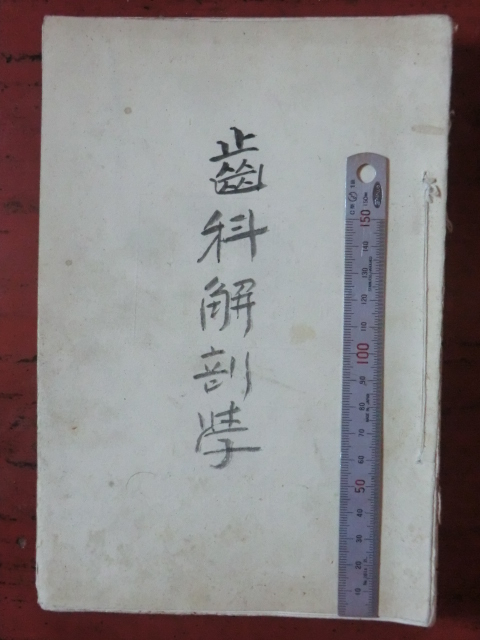 齒科解剖学
150
140
130
120
110
100
90
80
70
60
50
40
30
20
10